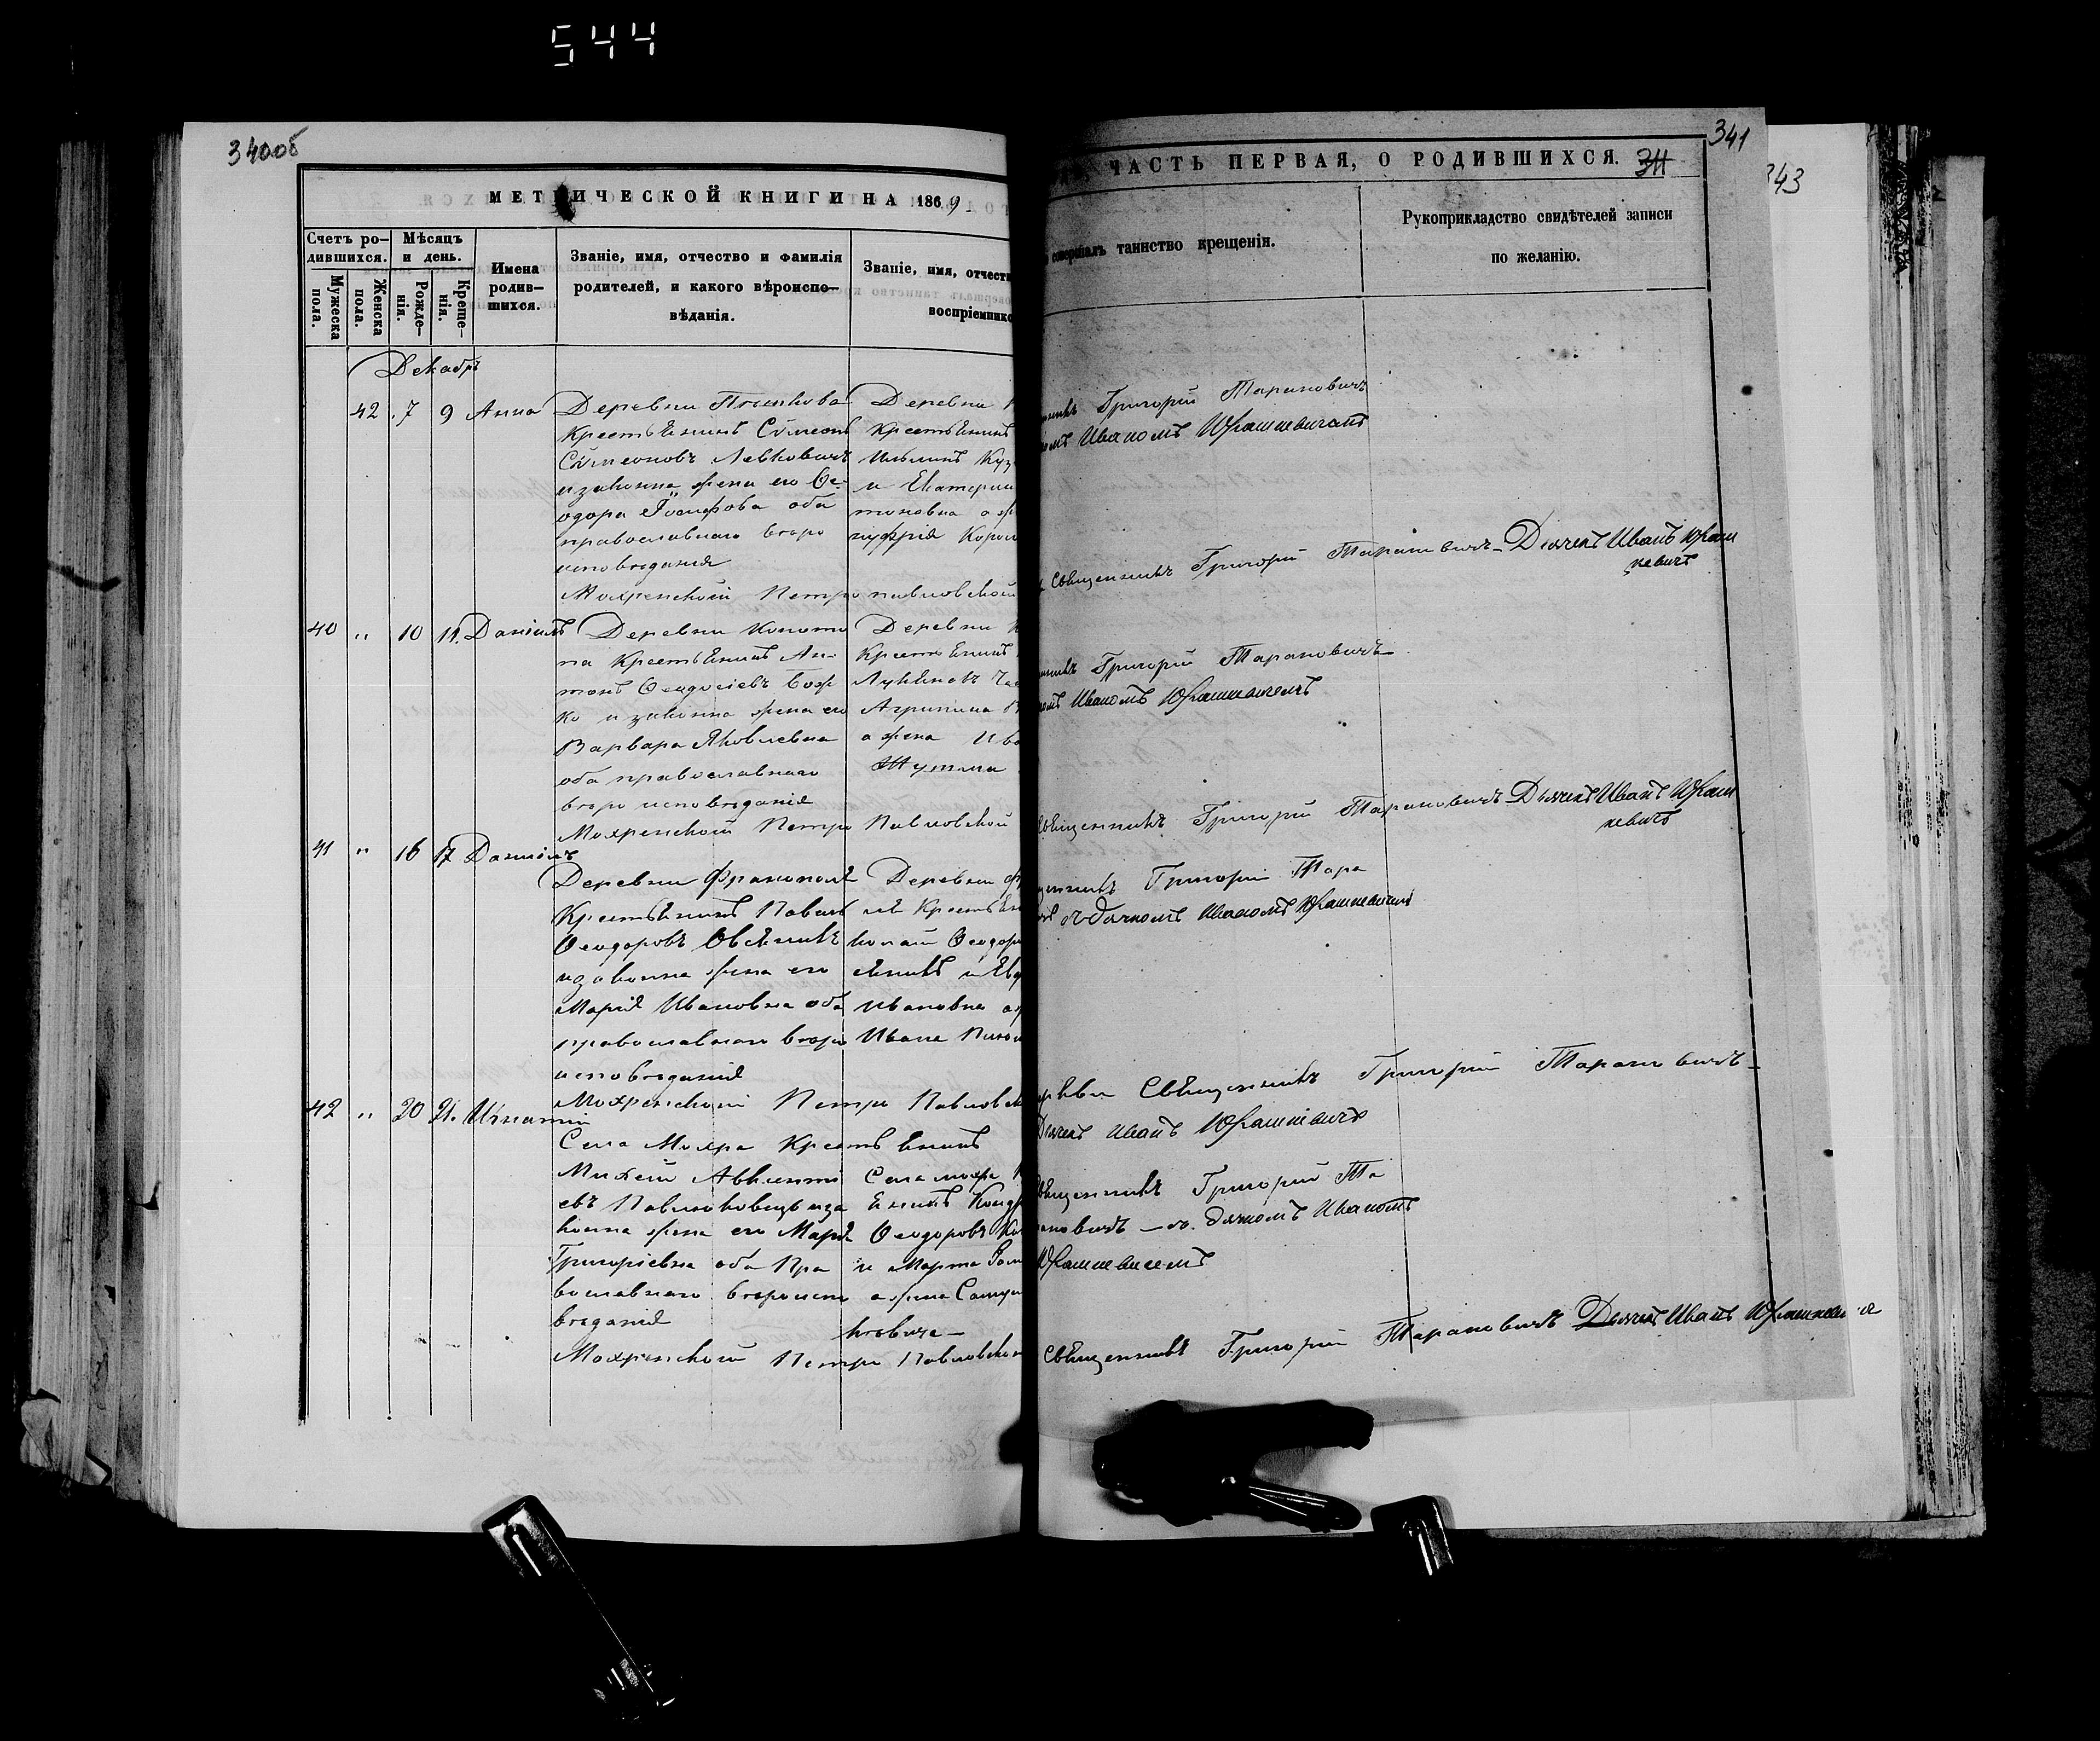 544
340об
МЕТРИЧЕСКОЙ КНИГИ НА 1869
Счетъ ро-
дившихся.
Мужеска пола.
Женска пола.
Мѣсяцъ
и день.
Рожде-
нія.
Креще-
нія.
Имена
родив-
шихся.
Званіе, имя, отчество и фамилія
родителей, и какого вѣроиспо-
вѣданія.
Званіе, имя, отчеств
воспріемнико
Декабрь
42 7 9 Анна
Деревни
Крестьянинъ Сѵмеонъ
Сѵмеоновъ Левковичъ
и законна жена его Ѳе-
одора Іосифова оба
православнаго вѣро
исповѣданія
Деревни
Крестьянинъ
и Екатерин
Мохренской Петропавловской
40 " 10 11. Даніилъ
Деревни Конот
па Крестьянинъ Ан-
тонъ Ѳеодосіевъ Бож
ко и законна жена его
Варвара Яковлевна
оба православнаго
вѣро исповѣданія
Деревни
Крестьянинъ
Агрипина
а жена
Мохренской Петро Павловской
41 " 16 17 Даніилъ
Деревни Франополя
Крестьянинъ Павелъ
Ѳеодоровъ Овсяникъ
и законна жена его
Марія Ивановна оба
православнаго вѣро
исповѣданія
Деревни Ф
лѣ Крестьян
колай Ѳеодор
сяникъ и Евд
Ивановна а
Ивана
Мохренской Петро Павловск
42 " 20 21. Игнатій
Села Мохра Крестьянинъ
Михей Авксенті
евъ Павлюковецъ и за
конна жена его Марія
Григоріевна оба Пра
вославнаго вѣроиспо
вѣданія
Села Мохра
янинъ Кондр
Ѳеодоровъ
и Марта
а жена
Мохренской Петро Павловской
341
ЧАСТЬ ПЕРВАЯ, О РОДИВШИХСЯ.
343
совершалъ таинство крещенія.
Рукоприкладство свидѣтелей записи
по желанію.
Григорій Тарановичъ
Иваномъ Юрашкевичемъ
Священникъ Григорій Тарановичъ Дьячекъ Иванъ Юраш
кевичъ
Григорій Тарановичъ
Иваномъ Юрашкевичемъ
Священникъ Григорій Тарановичъ Дьячекъ Иванъ Юраш
кевичъ
Григорій Тара
съ дьячкомъ Иваномъ Юрашкевичемъ
Священникъ Григорій Тарановичъ
Дьячекъ Иванъ Юрашкевичъ
Священникъ Григорій Та
рановичъ — съ дьячкомъ Иваномъ
Юрашкевичемъ
Священникъ Григорій Тарановичъ Дьячекъ Иванъ Юрашкевичъ